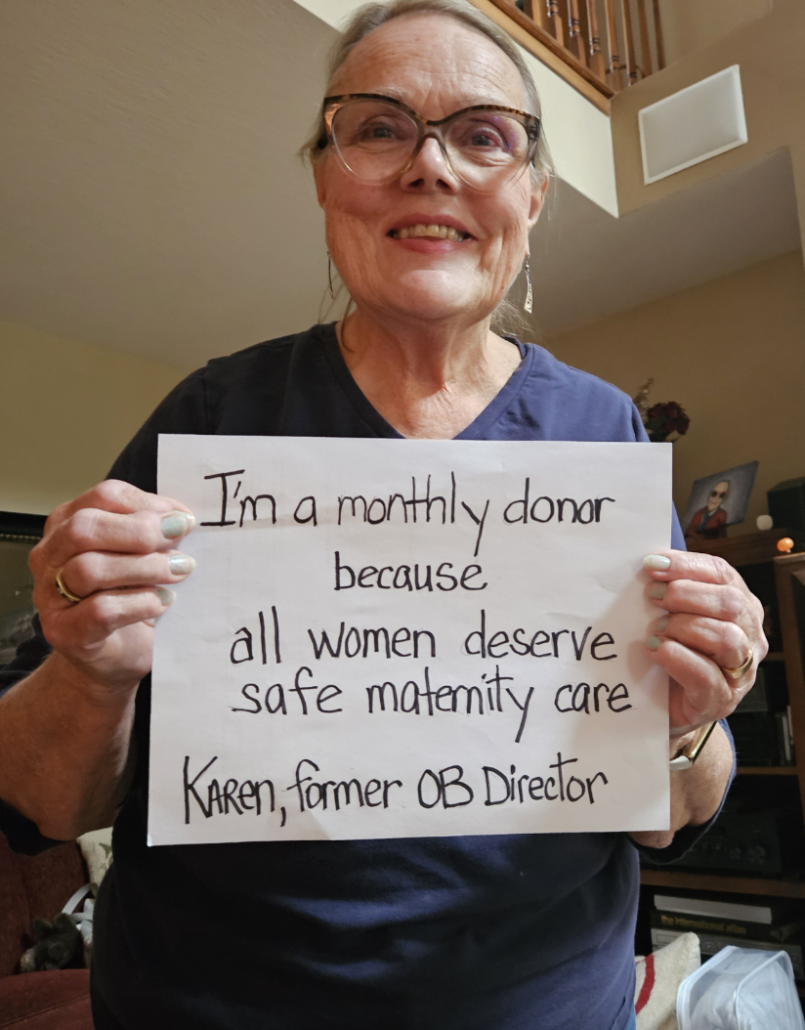 I'm a monthly donor
because
all women deserve
safe maternity care
KAREN, former OB Director
The international atlas